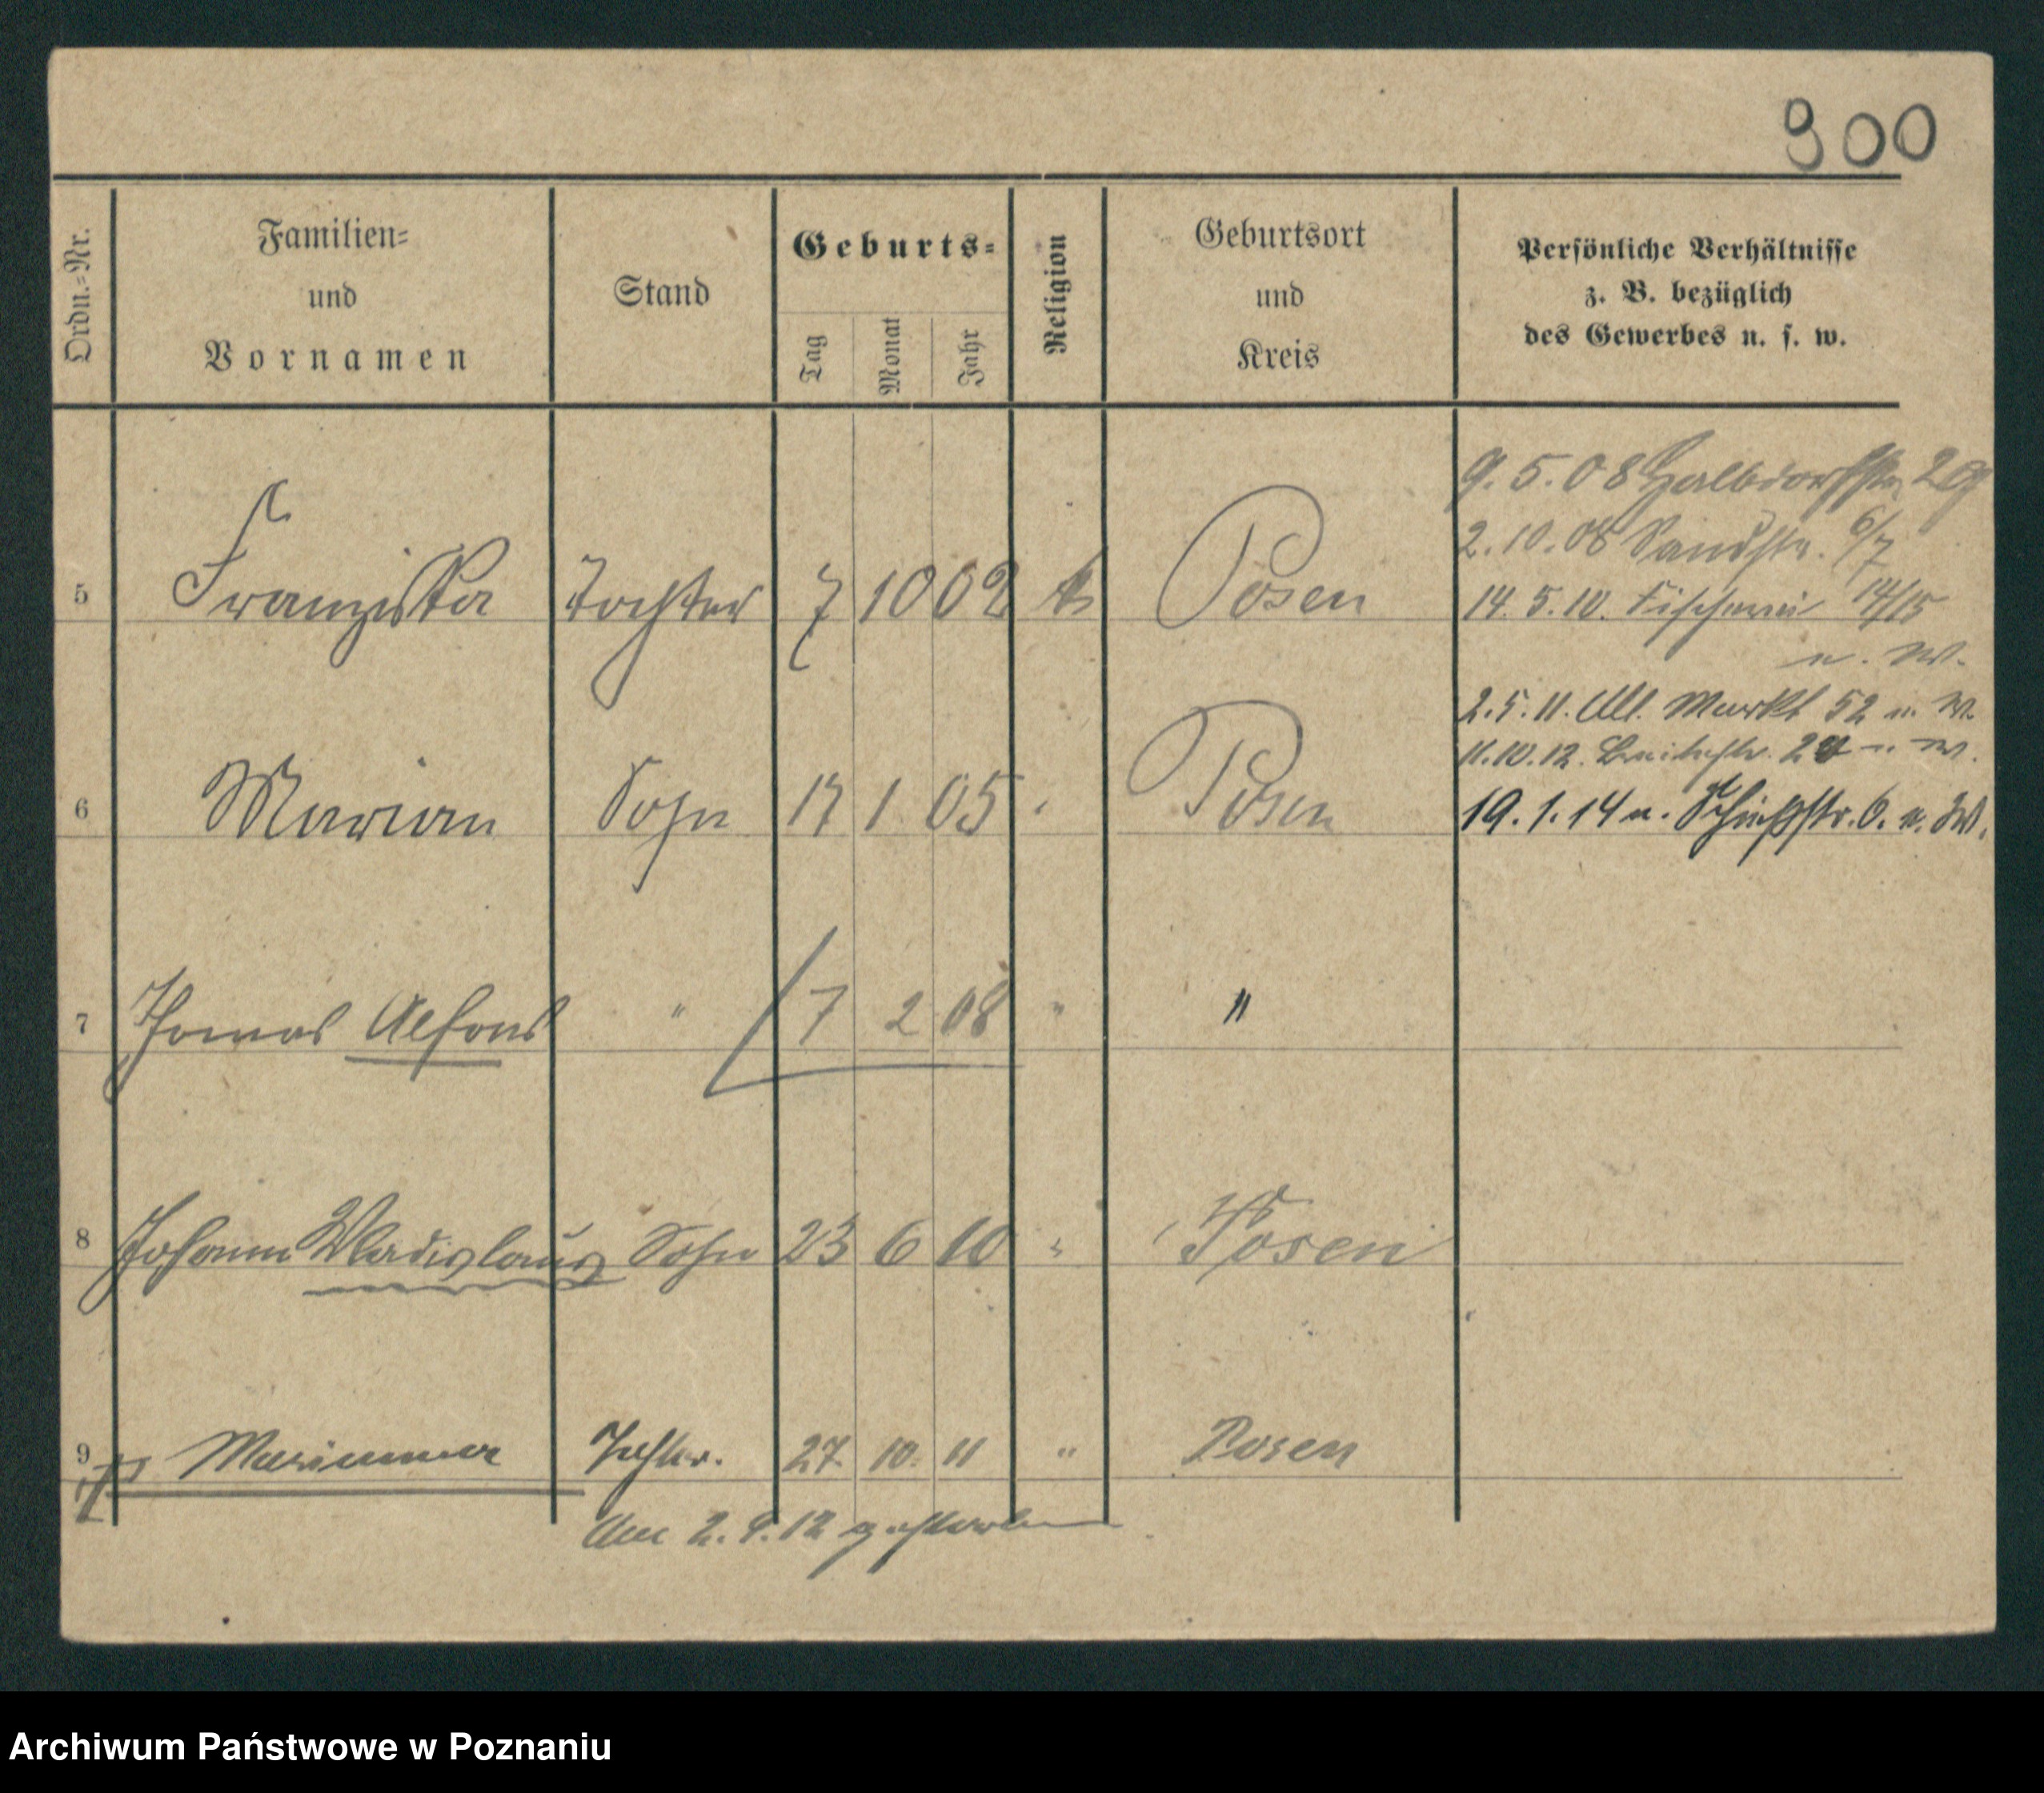 900
Ordn.=Nr.
Familien=
und
Vornamen
Stand
Geburts=
Tag
Monat
Jahr
Religion
Geburtsort
und
Kreis
Persönliche Verhältnisse
z. B. bezüglich
des Gewerbes u. s. w.
9. 5. 08 Halbdorfstr. 29
2. 10. 08 Sandstr. 6/7
5 Franziska Tochter 7 10 02 k Posen
14. 5. 10. Fischerei 14/15
u. W.
2. 5. 11. All. Markt 52 u. W.
11. 10. 12. Breitestr. 20 u. W.
6 Marian Sohn 17 1 05 Posen
19. 1. 14 u. Schießstr. 6. u. W.
7 Thomas Alfons " 7 2 08 " "
8 Johann Wladislaus Sohn 23 6 10 " Posen
9 Marianna Tochter. 27. 10. 11 " Posen
Am 2. 9. 12 gestorben
Archiwum Państwowe w Poznaniu